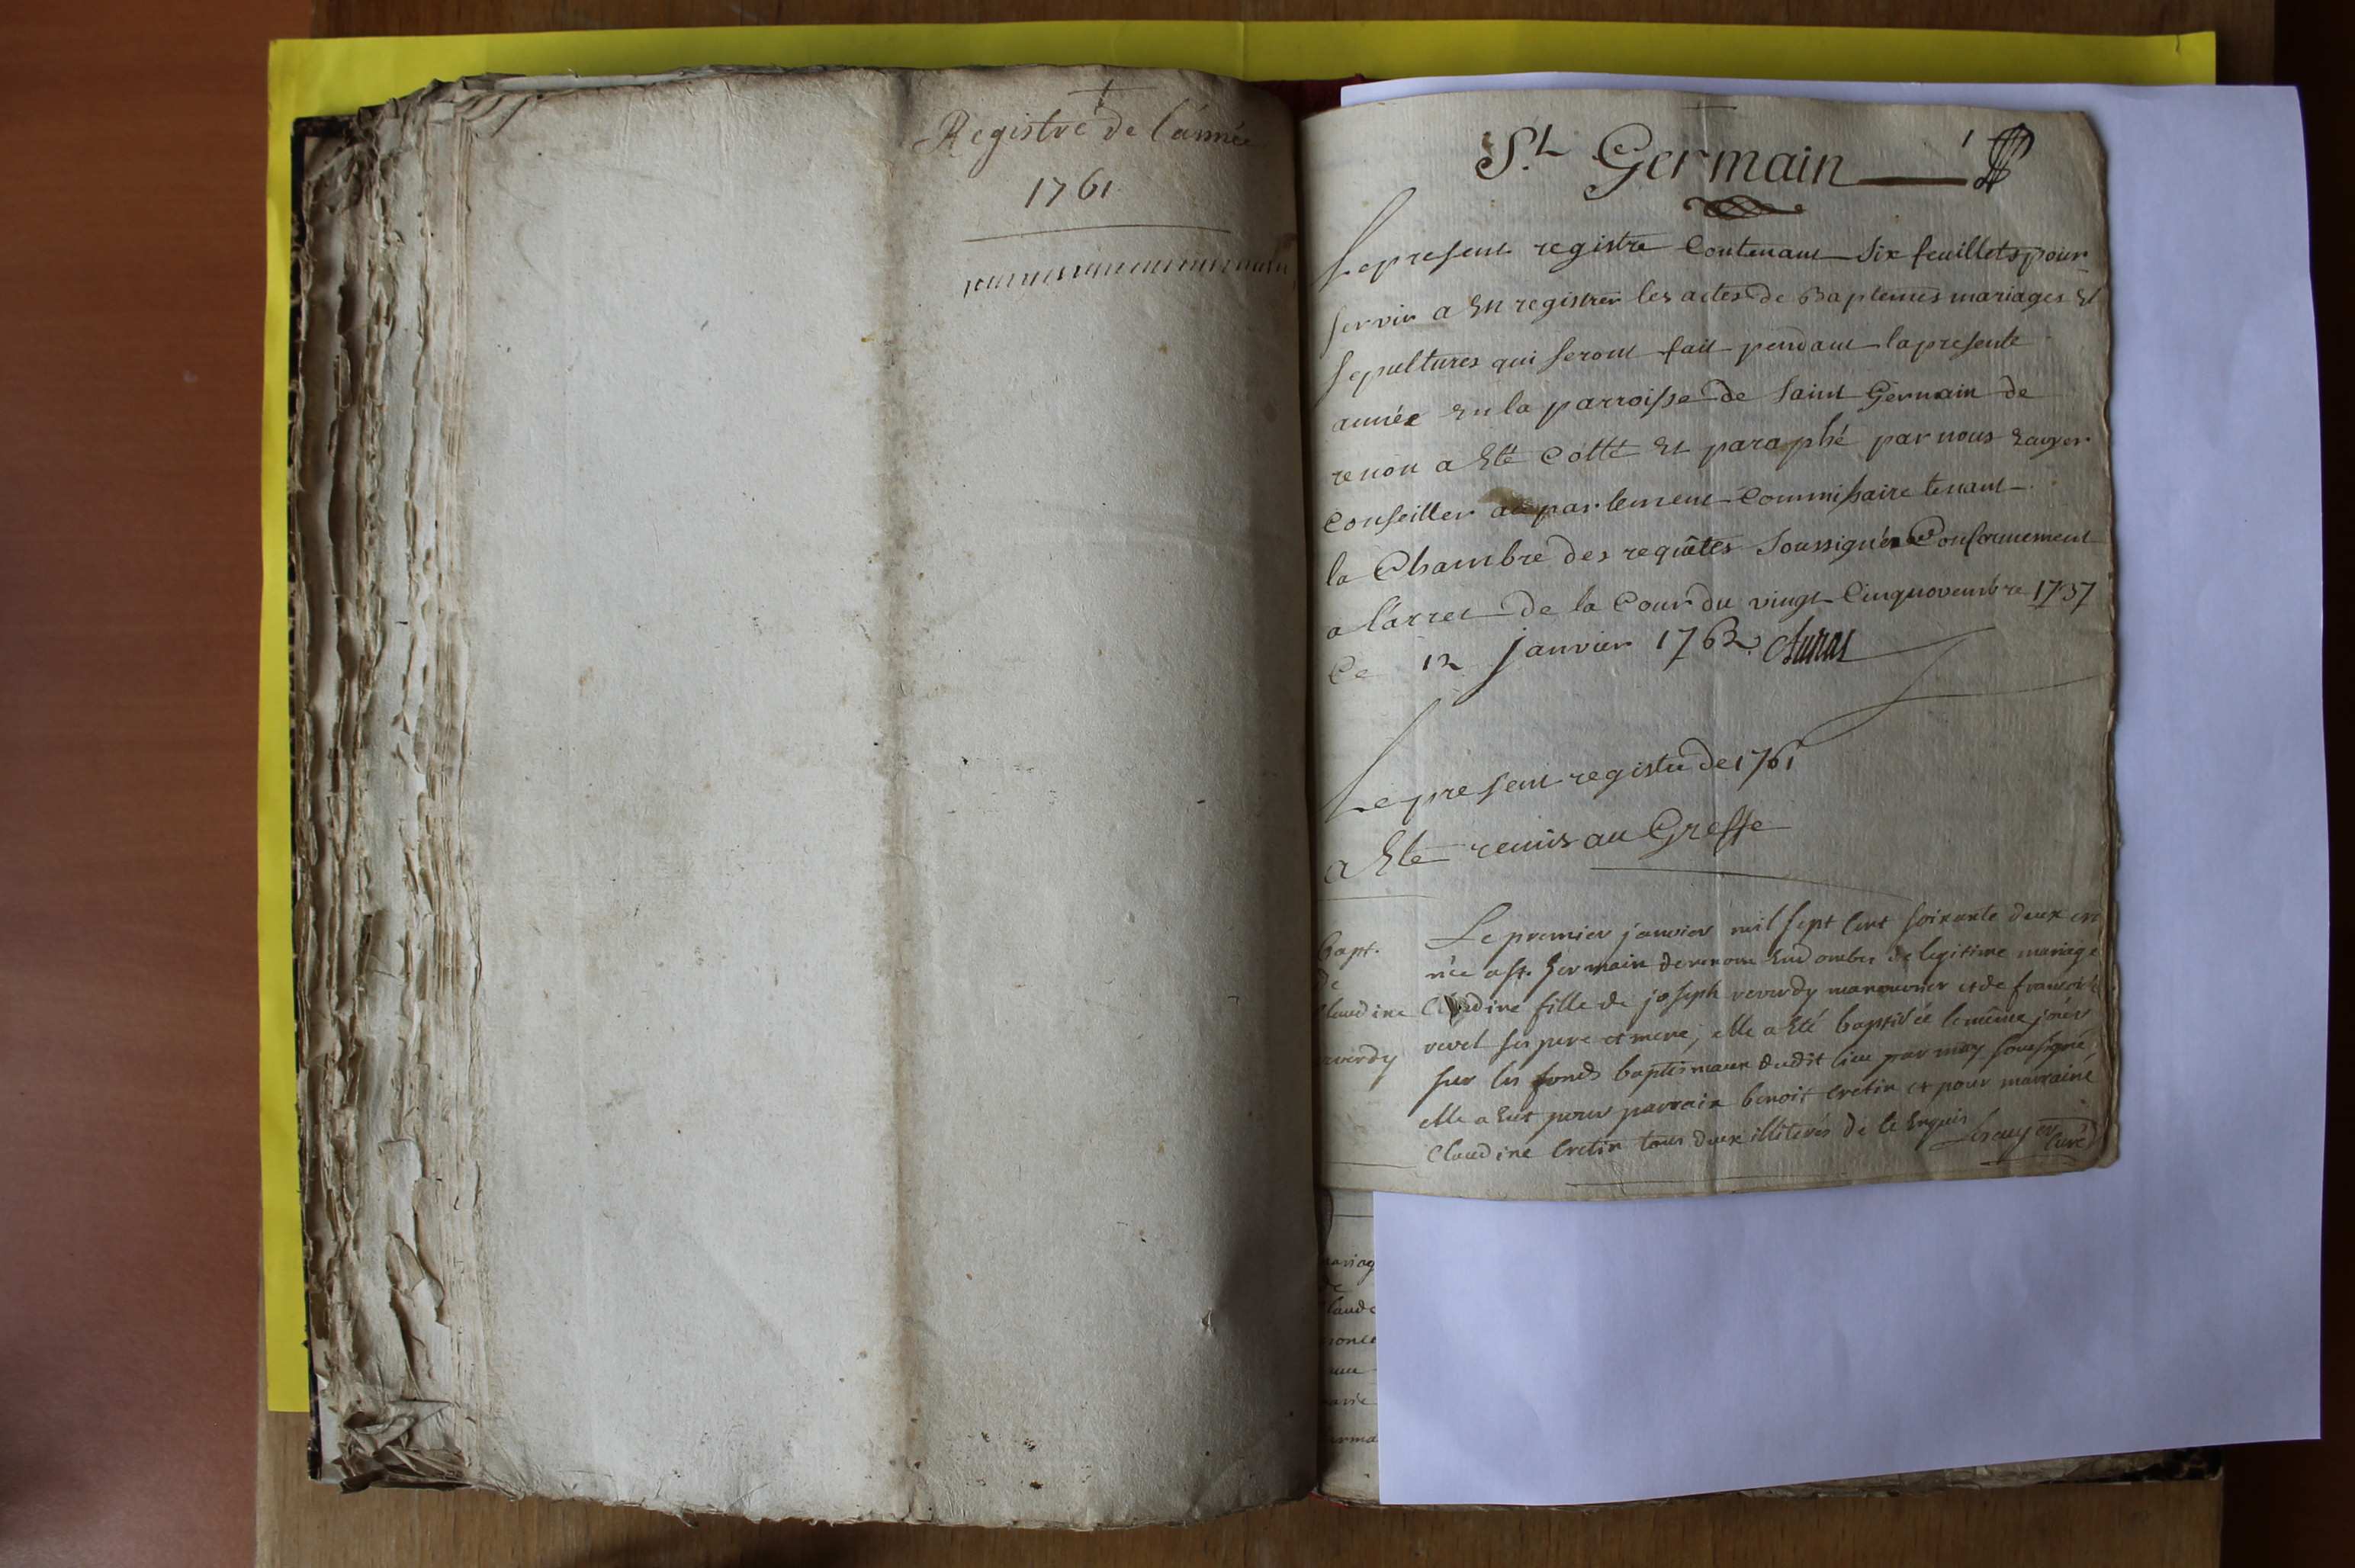 Registre de l'année
1761
St Germain 1
Le present registre Contenant six feuillets pour
servir a Enregistrer les actes de Baptemes mariages Et
sepultures qui seront fait pendant la presente
année En la parroisse de saint Germain de
renon a Eté Cotté Et paraphé par nous Ecuyer
Conseiller au parlement Commissaire tenant
la Chambre des requêtes soussigné Conformement
a l'arret de la Cour du vingt Cinq novembre 1737
Ce 12 janvier 1762
Le present registre de 1761
a Eté remis au Greffe
Bapt.
de
Claudine
reverdy
Le premier janvier mil sept cent soixante deux est
née a st. Germain de renom et de legitime mariage
Claudine fille de joseph reverdy manouvrier et de francoise
revel ses pere et mere, elle a Eté baptisée le même jour
sur les fonds baptismaux dudit lieu par moy soussigné,
elle a Eut pour parrain benoit cretin et pour marraine
Claudine cretin tous deux illiterés de ce Enquis
curé
mariag
de
Claude